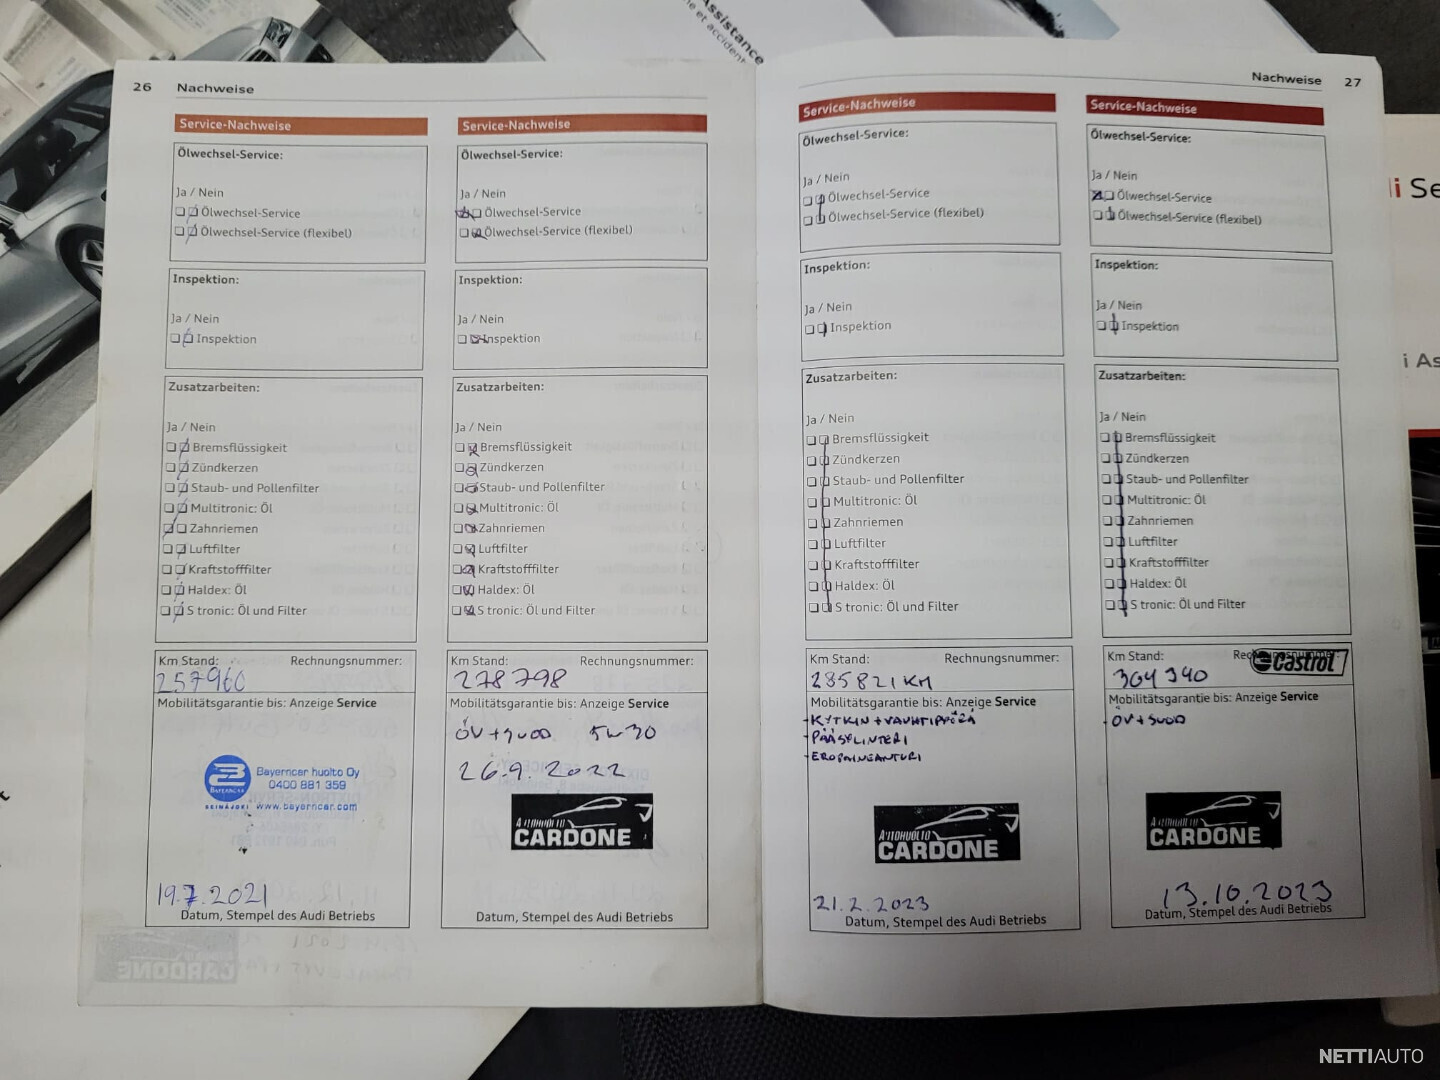 Assistance
26 Nachweise
Service-Nachweise
Ölwechsel-Service:
Ja / Nein
Ölwechsel-Service
Ölwechsel-Service (flexibel)
Inspektion:
Ja / Nein
Inspektion
Zusatzarbeiten:
Ja / Nein
Bremsflüssigkeit
Zündkerzen
Staub- und Pollenfilter
Multitronic: Öl
Zahnriemen
Luftfilter
Kraftstofffilter
Haldex: Öl
S tronic: Öl und Filter
Km Stand: Rechnungsnummer:
257960
Mobilitätsgarantie bis: Anzeige Service
Bayerncar huolto Oy
0400 881 359
SEINÄJOKI www.bayerncar.com
19.7.2021
Datum, Stempel des Audi Betriebs
Service-Nachweise
Ölwechsel-Service:
Ja / Nein
Ölwechsel-Service
Ölwechsel-Service (flexibel)
Inspektion:
Ja / Nein
Inspektion
Zusatzarbeiten:
Ja / Nein
Bremsflüssigkeit
Zündkerzen
Staub- und Pollenfilter
Multitronic: Öl
Zahnriemen
Luftfilter
Kraftstofffilter
Haldex: Öl
S tronic: Öl und Filter
Km Stand: Rechnungsnummer:
278798
Mobilitätsgarantie bis: Anzeige Service
ÖV+SUOD 5W30
26.9.2022
CARDONE
Datum, Stempel des Audi Betriebs
Nachweise 27
Service-Nachweise
Ölwechsel-Service:
Ja / Nein
Ölwechsel-Service
Ölwechsel-Service (flexibel)
Inspektion:
Ja / Nein
Inspektion
Zusatzarbeiten:
Ja / Nein
Bremsflüssigkeit
Zündkerzen
Staub- und Pollenfilter
Multitronic: Öl
Zahnriemen
Luftfilter
Kraftstofffilter
Haldex: Öl
S tronic: Öl und Filter
Km Stand: Rechnungsnummer:
285821 KM
Mobilitätsgarantie bis: Anzeige Service
- KYTKIN + VAUHTIPYÖRÄ
- PÄÄSYLINTERI
- EROPAINEANTURI
AUTOHUOLTO
CARDONE
21.2.2023
Datum, Stempel des Audi Betriebs
Service-Nachweise
Ölwechsel-Service:
Ja / Nein
Ölwechsel-Service
Ölwechsel-Service (flexibel)
Inspektion:
Ja / Nein
Inspektion
Zusatzarbeiten:
Ja / Nein
Bremsflüssigkeit
Zündkerzen
Staub- und Pollenfilter
Multitronic: Öl
Zahnriemen
Luftfilter
Kraftstofffilter
Haldex: Öl
S tronic: Öl und Filter
Km Stand: Castrol
304340
Mobilitätsgarantie bis: Anzeige Service
- ÖV+SUOD
CARDONE
13.10.2023
Datum, Stempel des Audi Betriebs
NETTIAUTO